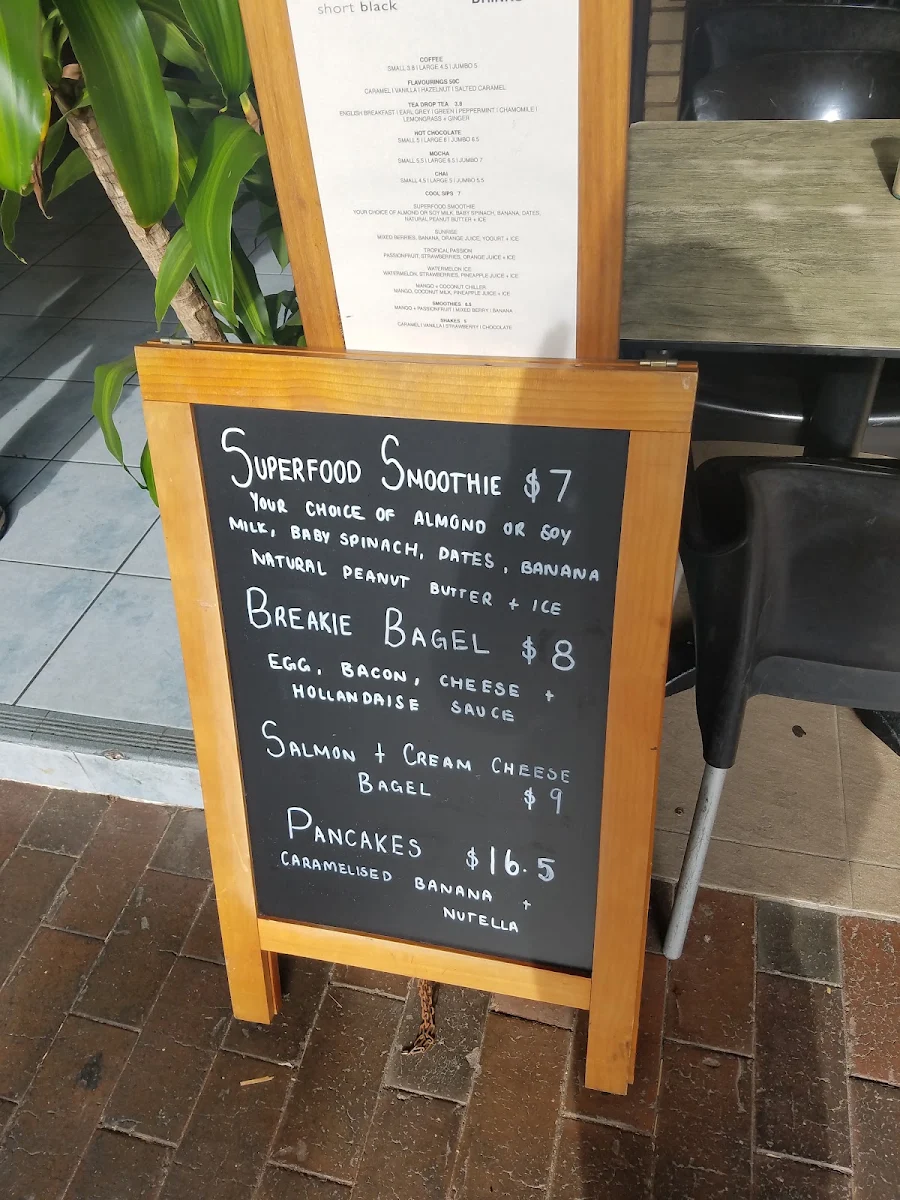 short black
DRINKS
COFFEE
SMALL 3.8 | LARGE 4.5 | JUMBO 5
FLAVOURINGS 50C
CARAMEL | VANILLA | HAZELNUT | SALTED CARAMEL
TEA DROP TEA 3.8
ENGLISH BREAKFAST | EARL GREY | GREEN | PEPPERMINT | CHAMOMILE |
LEMONGRASS + GINGER
HOT CHOCOLATE
SMALL 5 | LARGE 6 | JUMBO 6.5
MOCHA
SMALL 5.5 | LARGE 6.5 | JUMBO 7
CHAI
SMALL 4.5 | LARGE 5 | JUMBO 5.5
COOL SIPS 7
SUPERFOOD SMOOTHIE
YOUR CHOICE OF ALMOND OR SOY MILK, BABY SPINACH, BANANA, DATES,
NATURAL PEANUT BUTTER + ICE
SUNRISE
MIXED BERRIES, BANANA, ORANGE JUICE, YOGURT + ICE
TROPICAL PASSION
PASSIONFRUIT, STRAWBERRIES, ORANGE JUICE + ICE
WATERMELON ICE
WATERMELON, STRAWBERRIES, PINEAPPLE JUICE + ICE
MANGO + COCONUT CHILLER
MANGO, COCONUT MILK, PINEAPPLE JUICE + ICE
SMOOTHIES 6.5
MANGO + PASSIONFRUIT | MIXED BERRY | BANANA
SHAKES 6
CARAMEL | VANILLA | STRAWBERRY | CHOCOLATE
SUPERFOOD SMOOTHIE $7
YOUR CHOICE OF ALMOND OR SOY
MILK, BABY SPINACH, DATES, BANANA
NATURAL PEANUT BUTTER + ICE
BREAKIE BAGEL $8
EGG, BACON, CHEESE +
HOLLANDAISE SAUCE
SALMON + CREAM CHEESE
BAGEL $9
PANCAKES $16.5
CARAMELISED BANANA +
NUTELLA